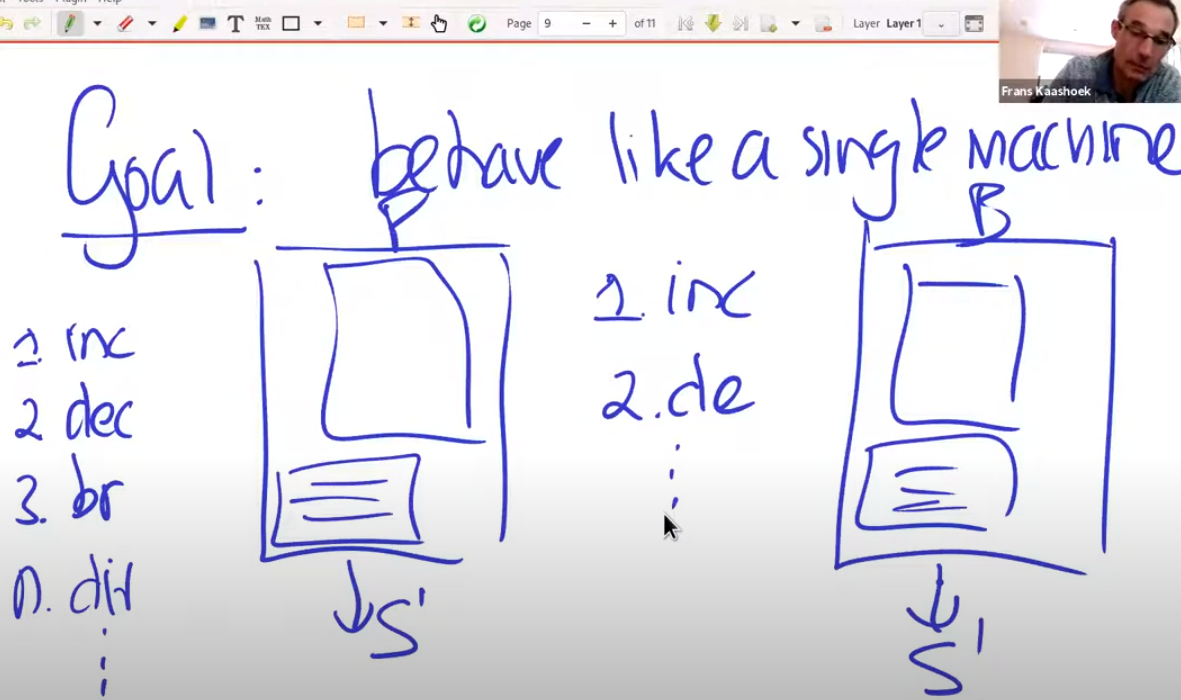 Tools Plugin Help
T Math TEX Page 9 − + of 11 Layer Layer 1
Frans Kaashoek
Goal: behave like a single machine
P
B
1. inc
2 dec
3. br
n. div
1. inc
2. de
S'
S'